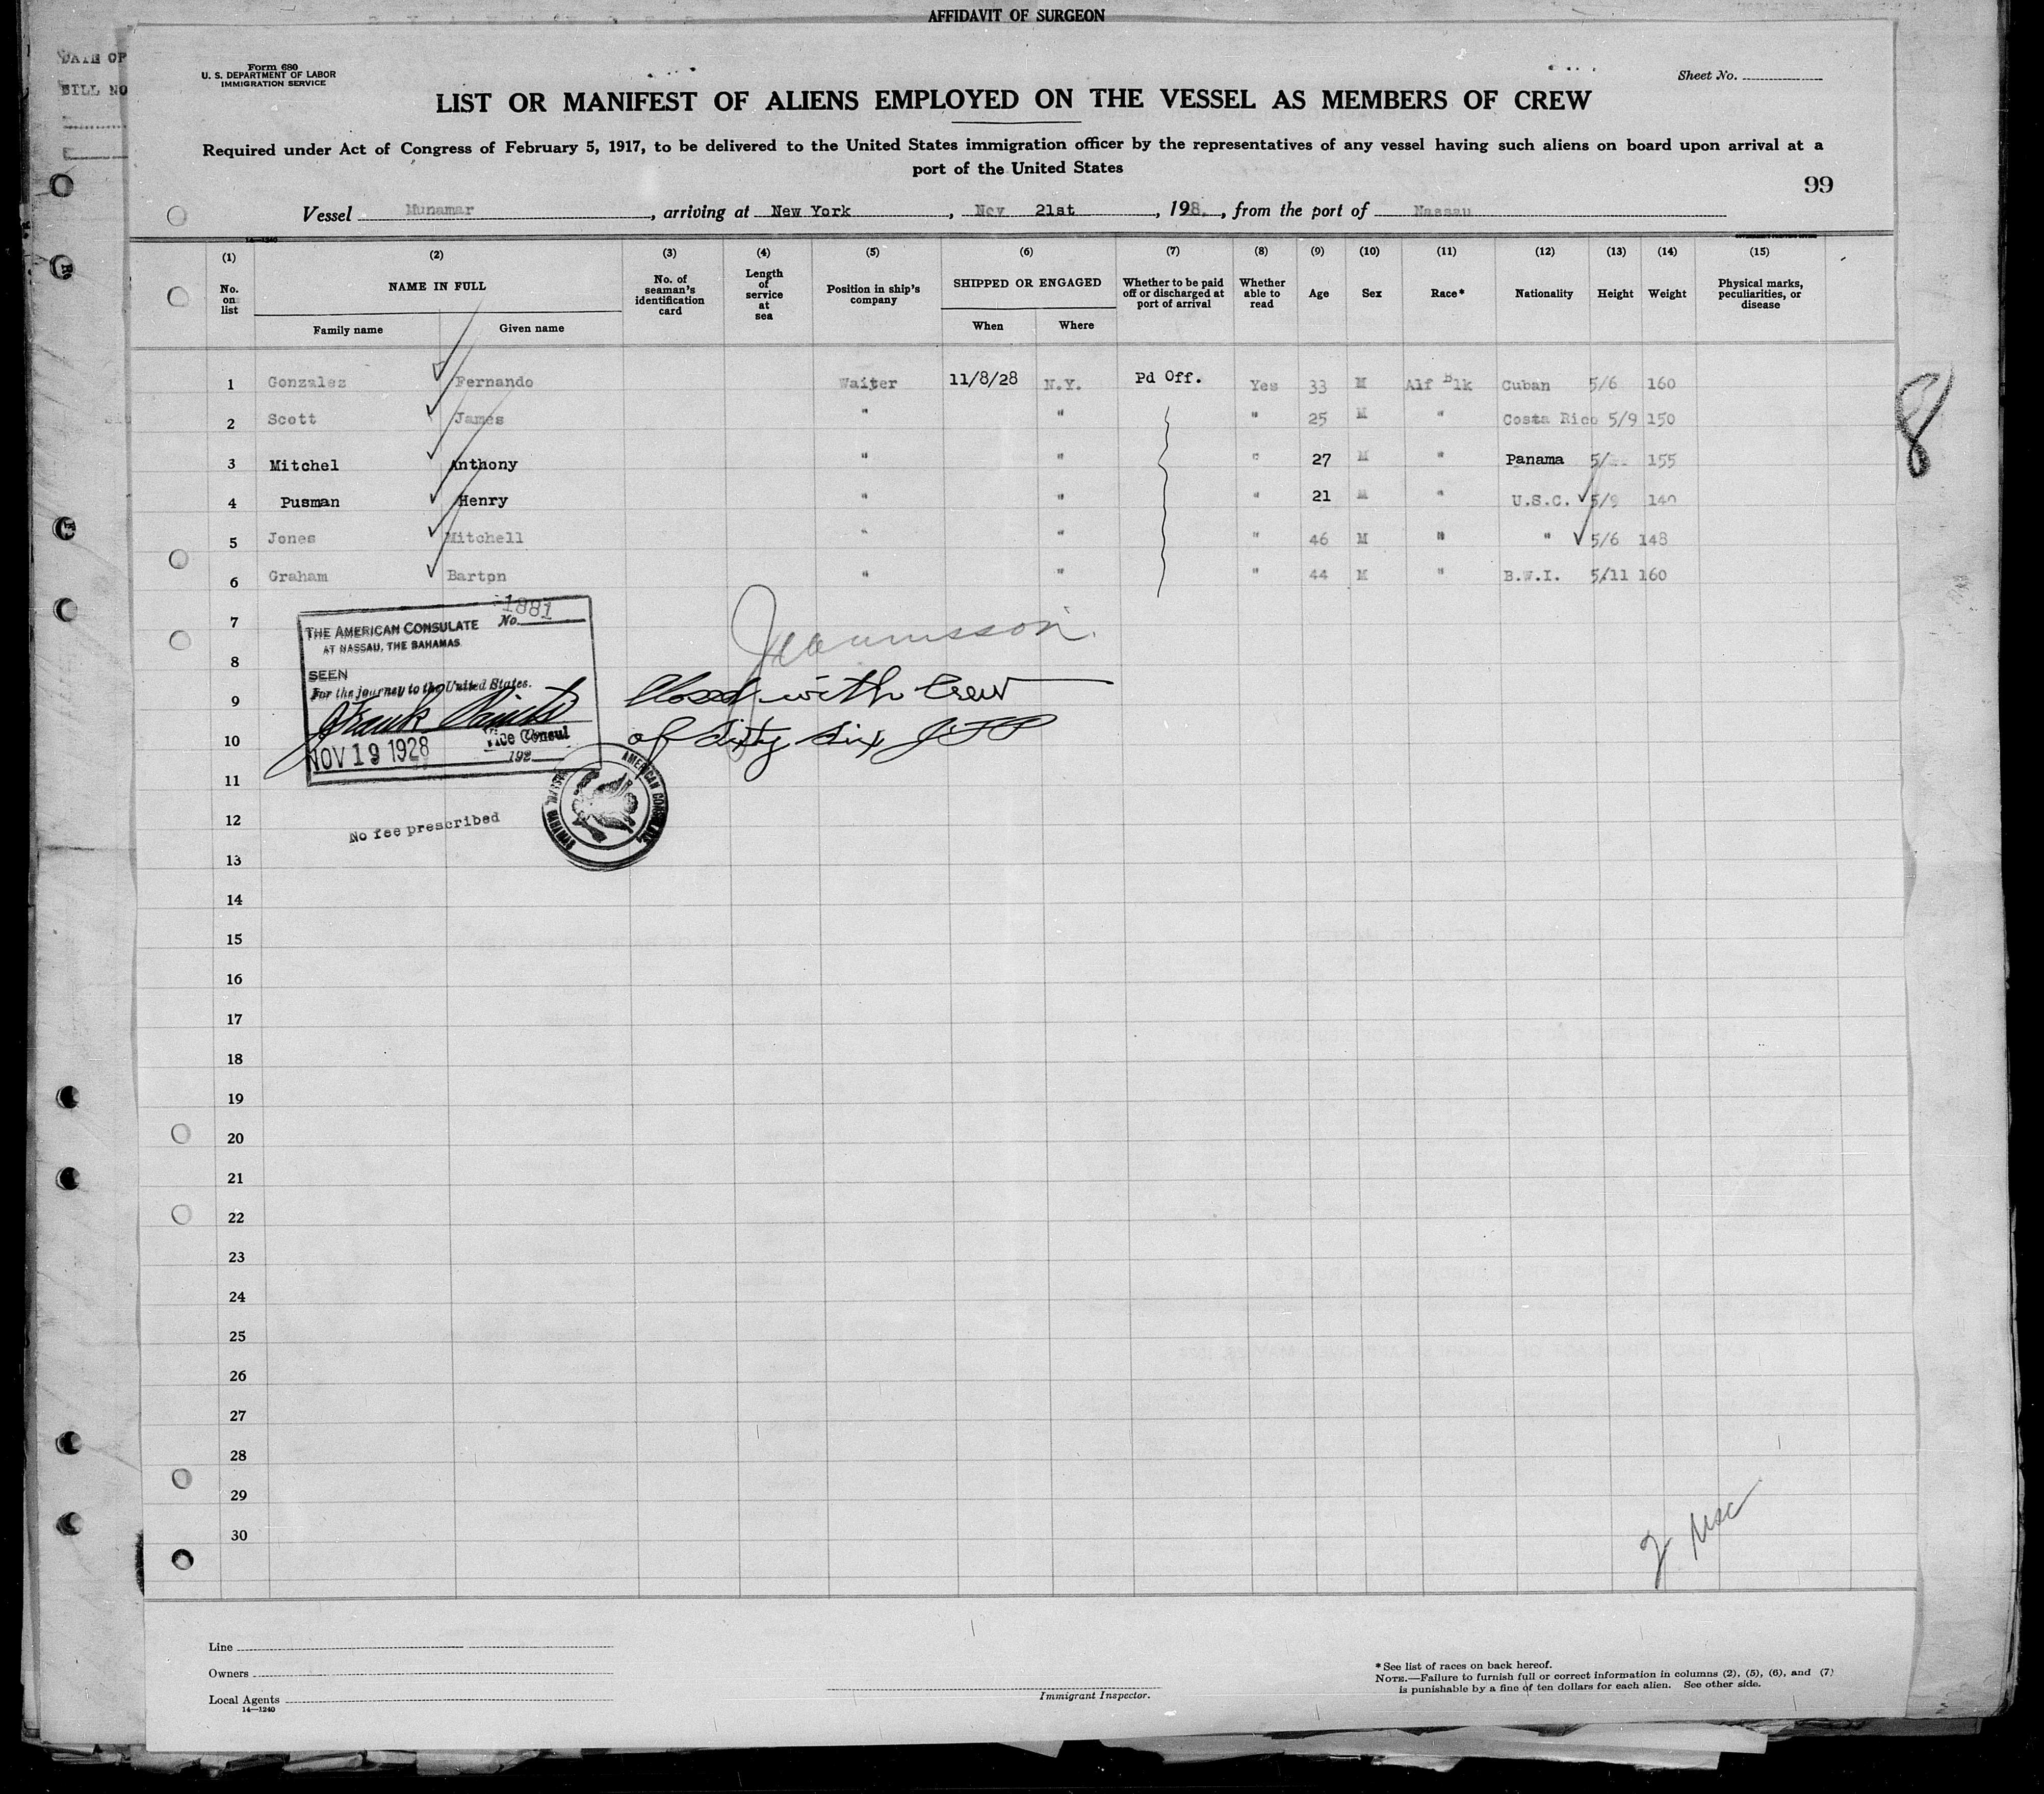 AFFIDAVIT OF SURGEON
DATE OF
BILL NO
Form 680
U. S. DEPARTMENT OF LABOR
IMMIGRATION SERVICE
Sheet No.
LIST OR MANIFEST OF ALIENS EMPLOYED ON THE VESSEL AS MEMBERS OF CREW
Required under Act of Congress of February 5, 1917, to be delivered to the United States immigration officer by the representatives of any vessel having such aliens on board upon arrival at a
port of the United States
99
Vessel Munamar, arriving at New York, Nov 21st, 198, from the port of Nassau
14—1240
(1) (2) (3) (4) (5) (6) (7) (8) (9) (10) (11) (12) (13) (14) (15)
No. on list NAME IN FULL Family name Given name No. of seaman's identification card Length of service at sea Position in ship's company SHIPPED OR ENGAGED When Where Whether to be paid off or discharged at port of arrival Whether able to read Age Sex Race* Nationality Height Weight Physical marks, peculiarities, or disease
1 Gonzalez Fernando Waiter 11/8/28 N.Y. Pd Off. Yes 33 M Alf Blk Cuban 5/6 160
2 Scott James " " " 25 M " Costa Rico 5/9 150
3 Mitchel Anthony " " " 27 M " Panama 5/ 155
4 Pusman Henry " " " 21 M " U.S.C. 5/9 140
5 Jones Mitchell " " " 46 M " " 5/6 148
6 Graham Barton " " " 44 M " B.W.I. 5/11 160
8
7
8
9
10
11
12
13
14
15
16
17
18
19
20
21
22
23
24
25
26
27
28
29
30
No. 1881
THE AMERICAN CONSULATE
AT NASSAU, THE BAHAMAS
SEEN
For the journey to the United States.
Frank
Vice Consul
NOV 19 1928
192
AMERICAN CONSULATE
NASSAU, BAHAMAS
No fee prescribed
Closed with Crew
of Sixty Six
2 USC
Line
Owners
Local Agents
14—1240
Immigrant Inspector.
* See list of races on back hereof.
NOTE.—Failure to furnish full or correct information in columns (2), (5), (6), and (7)
is punishable by a fine of ten dollars for each alien. See other side.